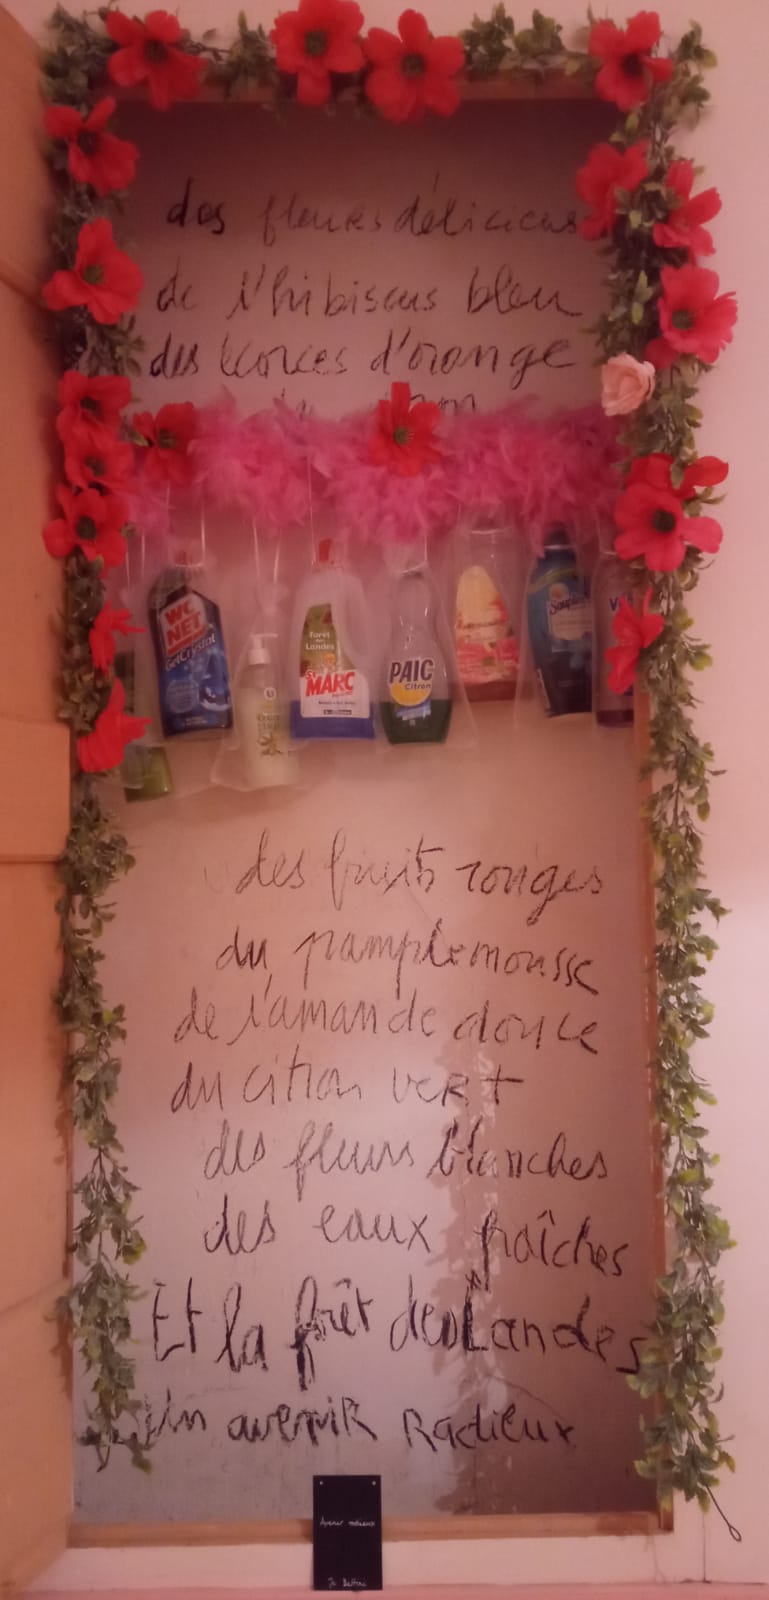 des fleurs délicieuses
de l'hibiscus bleu
des écorces d'orange
WC
NET
GelCrystal
Forêt
des
Landes
St
MARC
PAIC
Citron
Soupline
des fruits rouges
du pamplemousse
de l'amande douce
du citron vert
des fleurs blanches
des eaux fraîches
Et la forêt des Landes
Un avenir Radieux
Avenir radieux